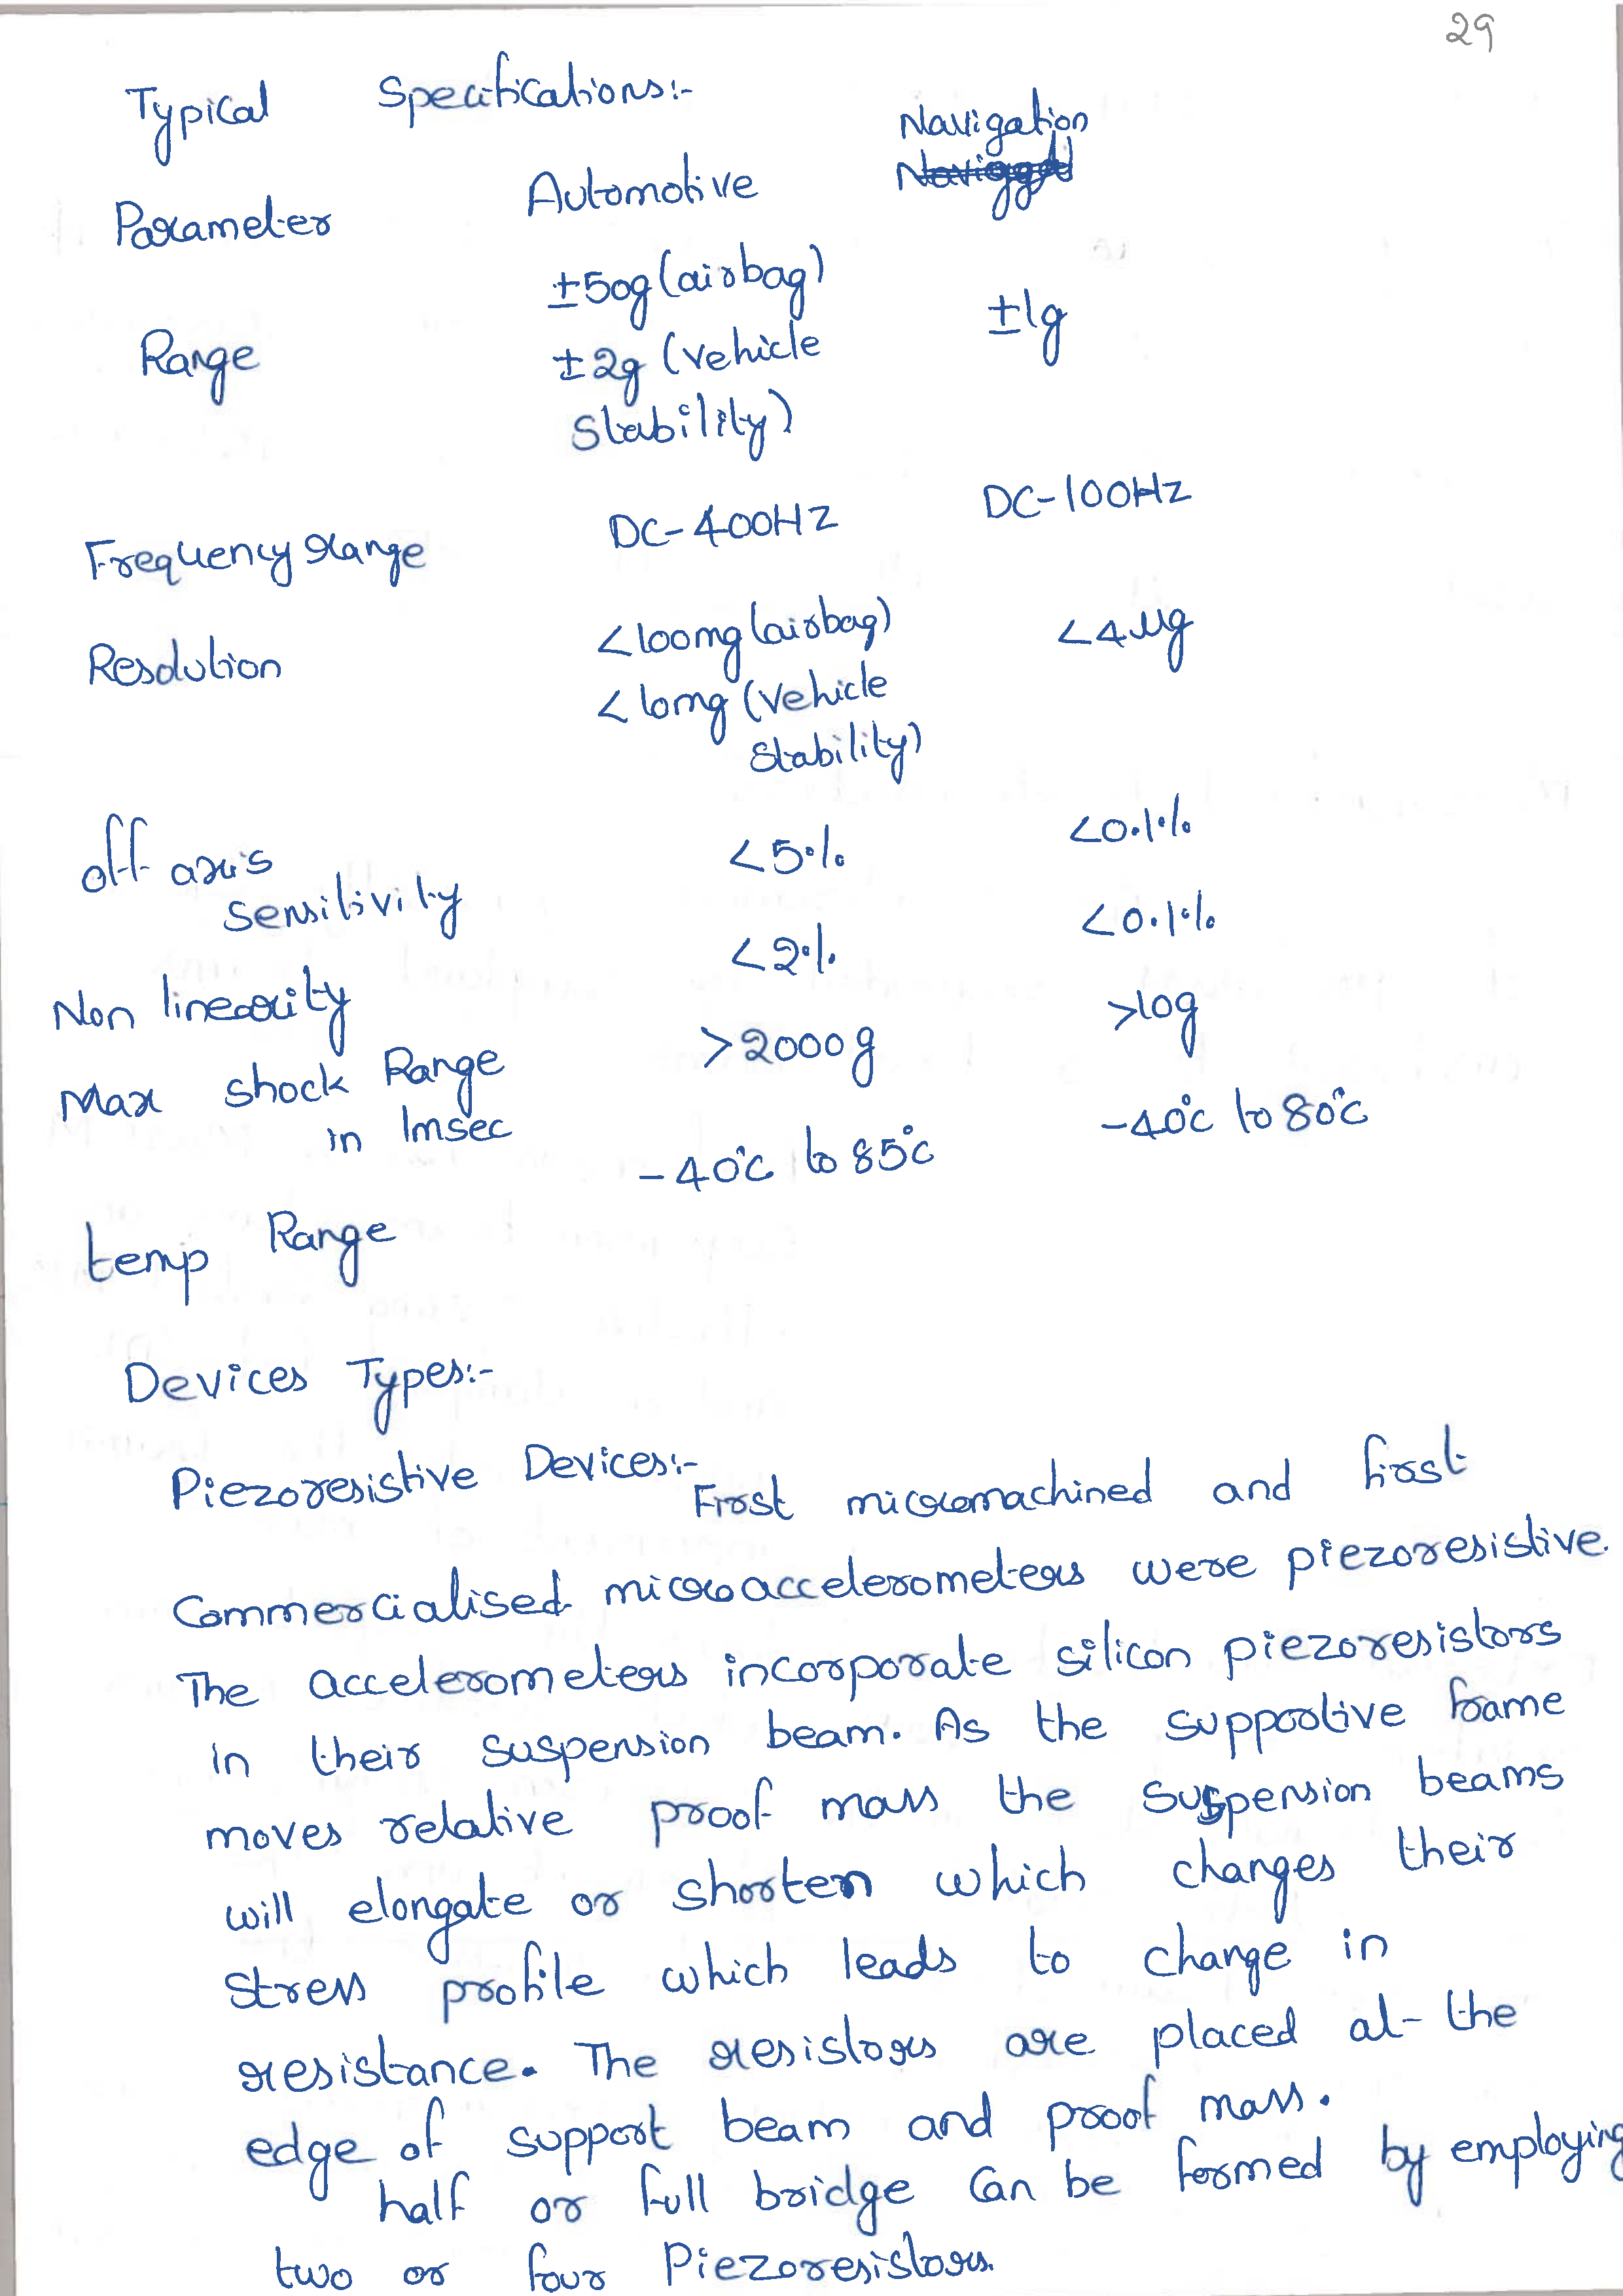 29
Typical Specifications:-
Parameter Automotive Navigation
Range ±50g (airbag) ±1g
±2g (vehicle
Stability)
Frequency range DC-400HZ DC-100HZ
Resolution <100mg (airbag) <4µg
<10mg (vehicle
Stability)
off axis <5% <0.1%
sensitivity
Non linearity <2% <0.1%
Max shock Range >2000g >10g
in 1msec
temp Range -40°C to 85°C -40°C to 80°C
Devices Types:-
Piezoresistive Devices:- First micromachined and first
Commercialised microaccelerometers were piezoresistive.
The accelerometers incorporate silicon piezoresistors
in their suspension beam. As the supportive frame
moves relative proof mass the suspension beams
will elongate or shorten which changes their
stress profile which leads to change in
resistance. The resistors are placed at the
edge of support beam and proof mass.
half or full bridge can be formed by employing
two or four Piezoresistors.